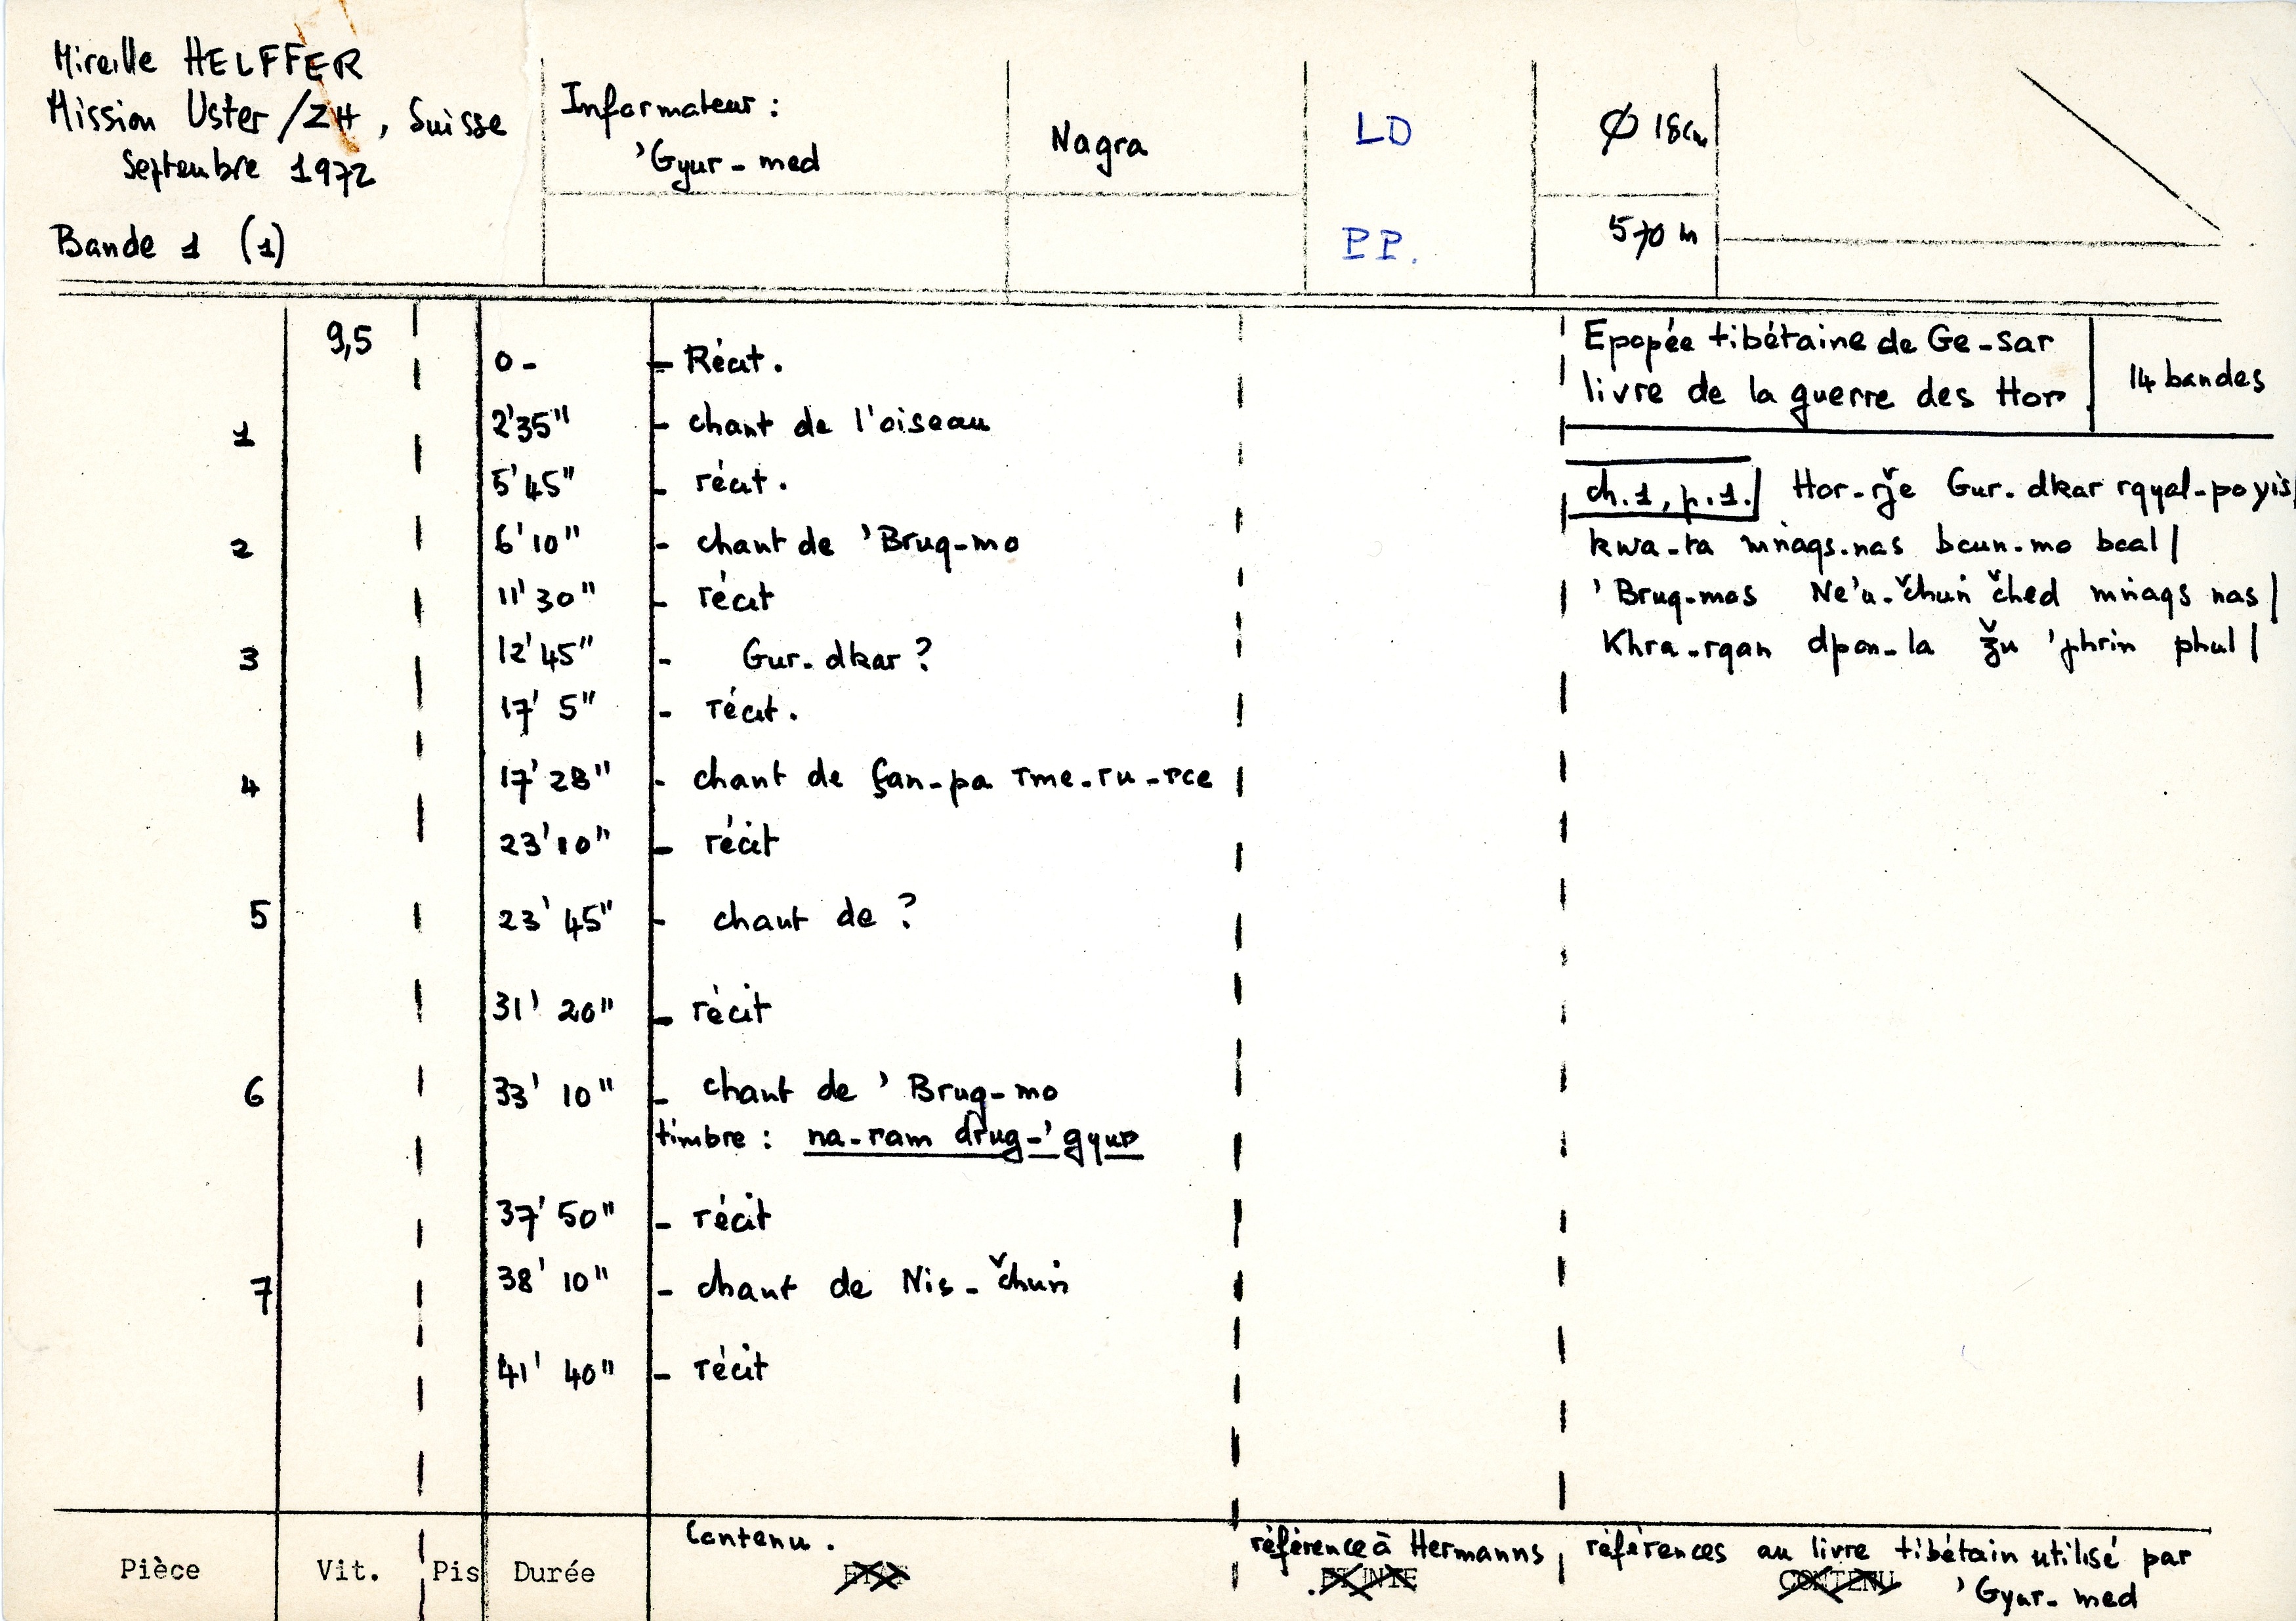 Mireille HELFFER
Mission Uster /ZH, Suisse
Septembre 1972
Bande 1 (1)
Informateur :
'Gyur-med
Nagra
LD
PP.
Ø 18cm
570 m
9,5
0- - Récit.
1 2'35" - chant de l'oiseau
5'45" - récit.
2 6'10" - chant de 'Brug-mo
11'30" - récit
3 12'45" - Gur.dkar ?
17'5" - récit.
4 17'28" - chant de šan-pa rme.ru-rce
23'10" - récit
5 23'45" - chant de ?
31'20" - récit
6 33'10" - chant de 'Brug-mo
timbre : na-ram drug-'gyur
37'50" - récit
7 38'10" - chant de Nis-čhuṅ
41'40" - récit
Epopée tibétaine de Ge-sar
livre de la guerre des Hor
14 bandes
ch.1, p.1. Hor-rǰe Gur.dkar rgyal-po yis/
kwa-ta mṅags.nas bcun.mo bcal/
'Brug-mos Ne'u-čhuṅ čhed mṅags nas/
Khra-rgan dpon-la žu 'phrin phul/
Pièce
Vit.
Pis
Durée
Contenu.
référence à Hermanns
CONTENU
références au livre tibétain utilisé par
'Gyur-med